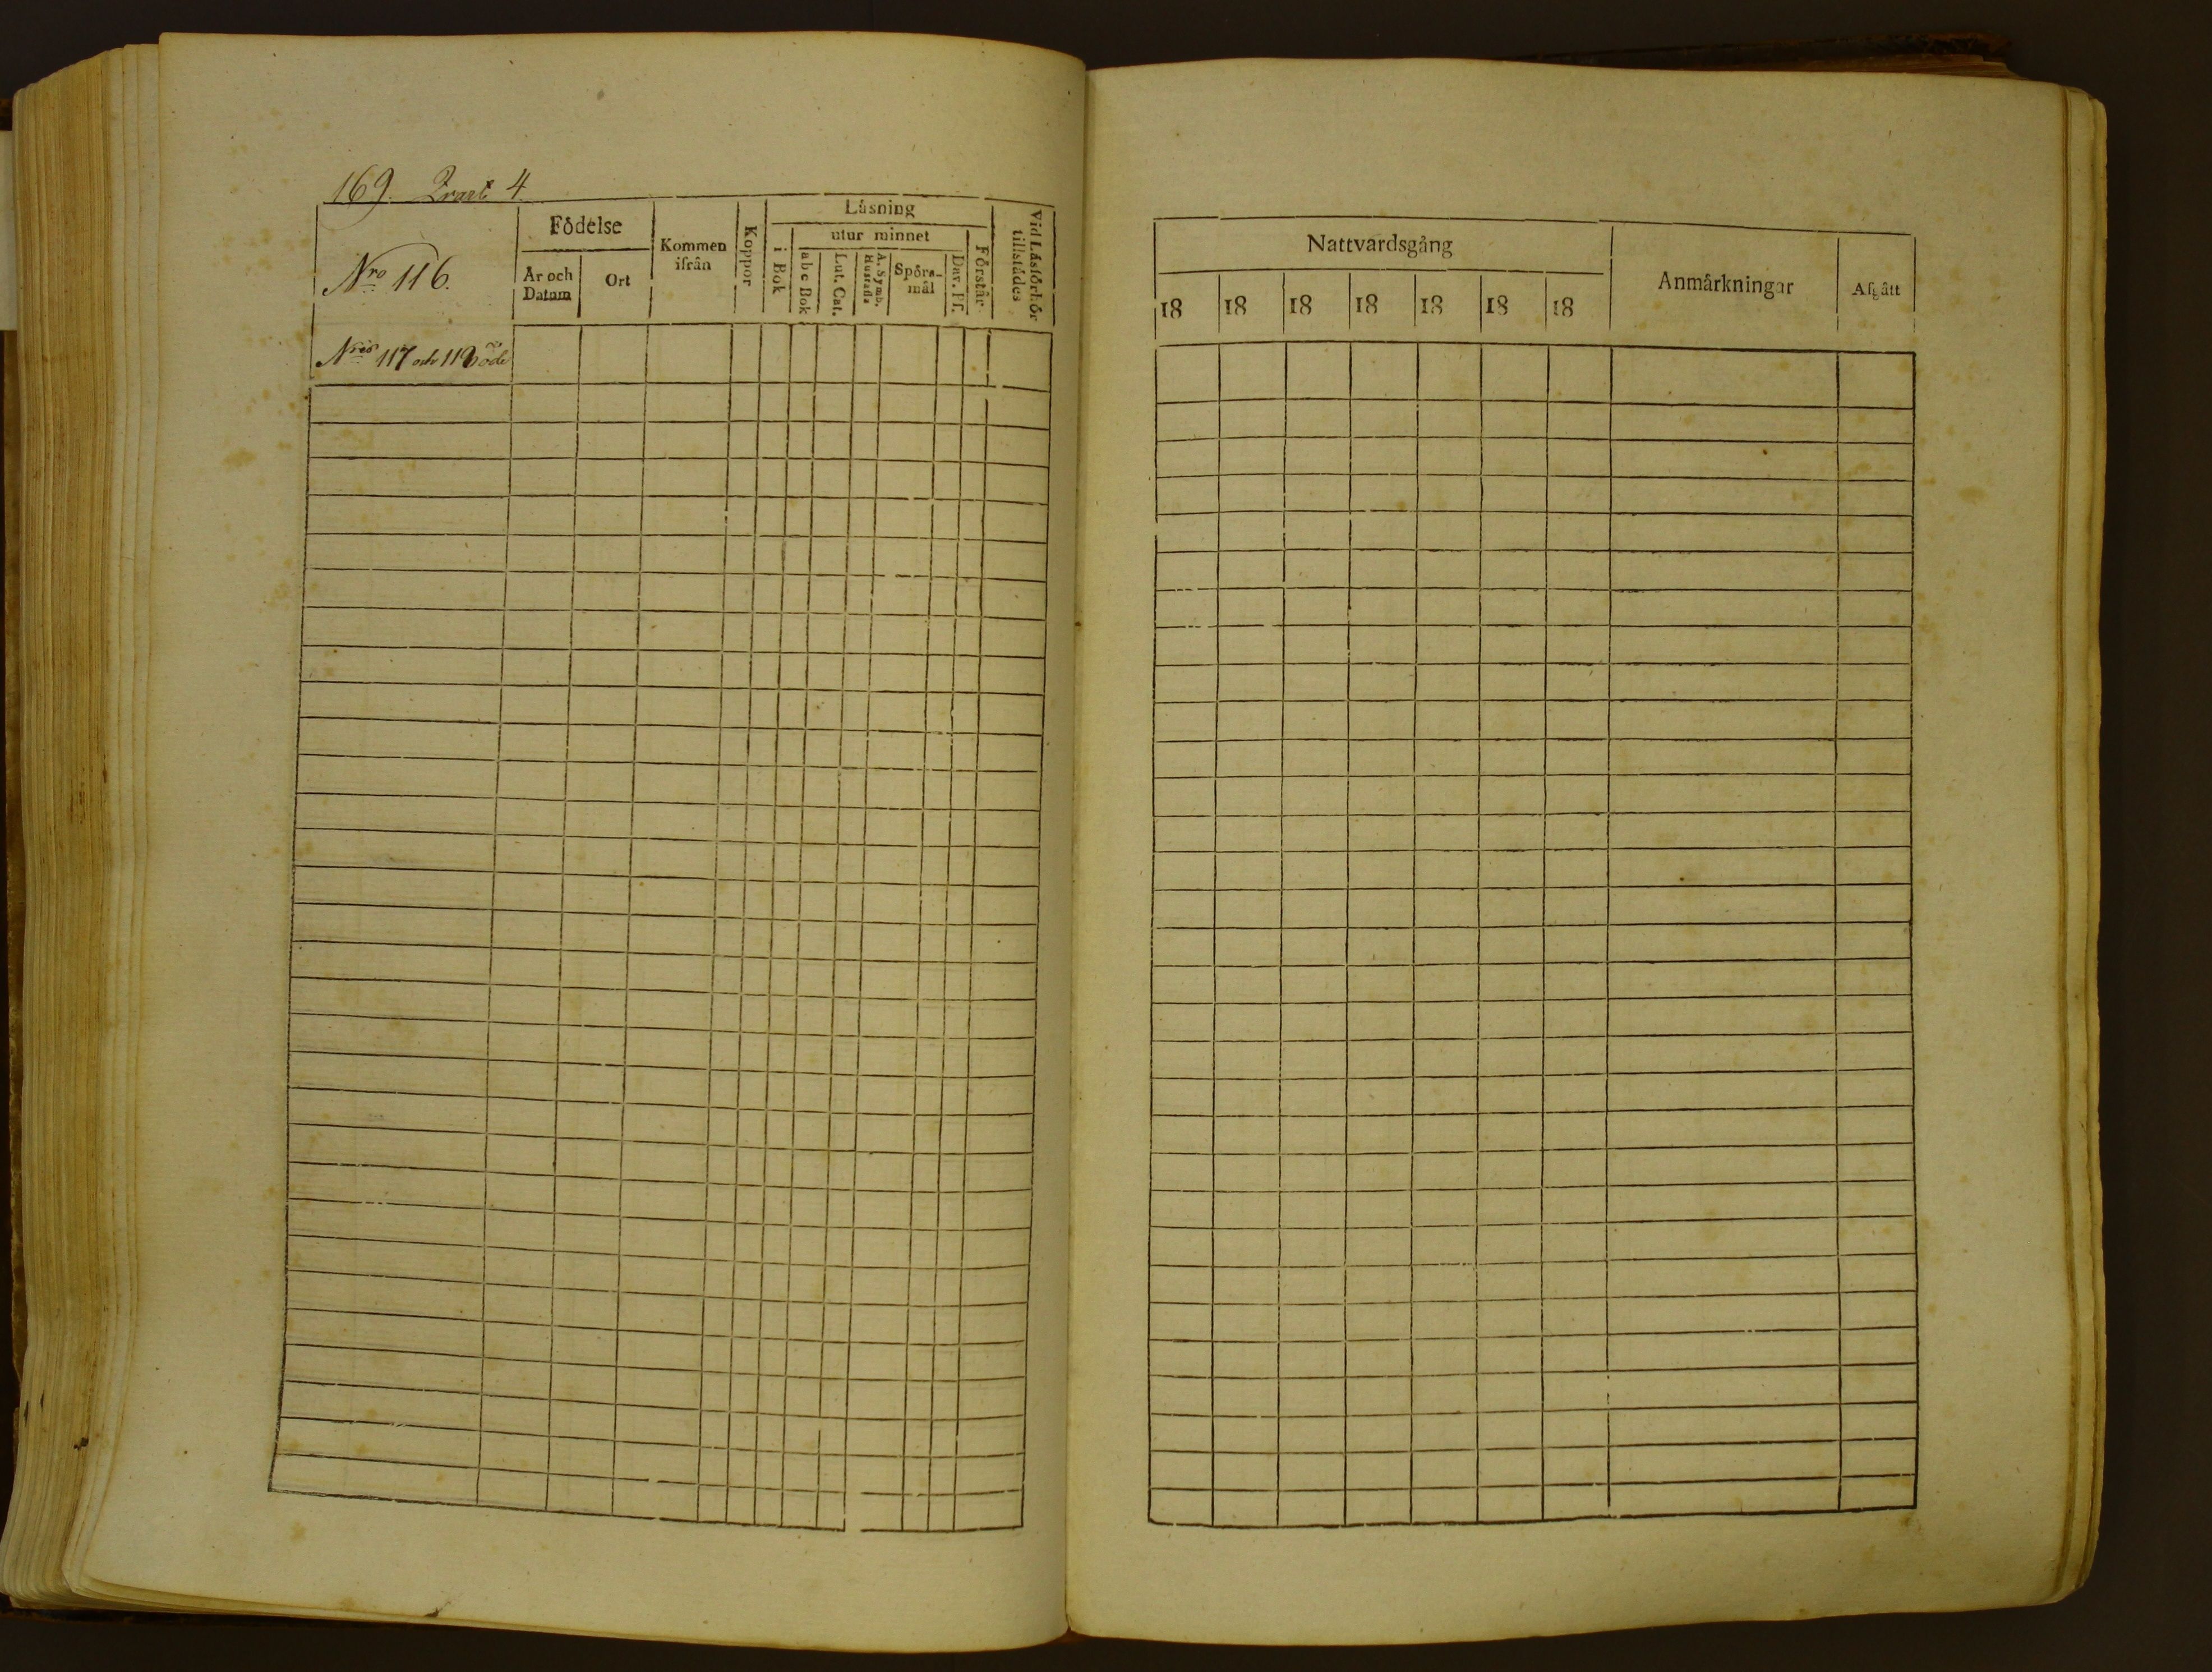 169. Qvart 4
Nro 116.
Födelse
År och Datum
Ort
Kommen ifrån
Koppor
Läsning
i Bok
utur minnet
abc Bok
Lut. Cat.
A. Symb. Hustafla
Spörsmål
Dav. Ps.
Förstår
Vid Läsförhör tillstädes
Nris 117 och 118 öde
Nattvardsgång
18 18 18 18 18 18 18
Anmärkningar
Afgått